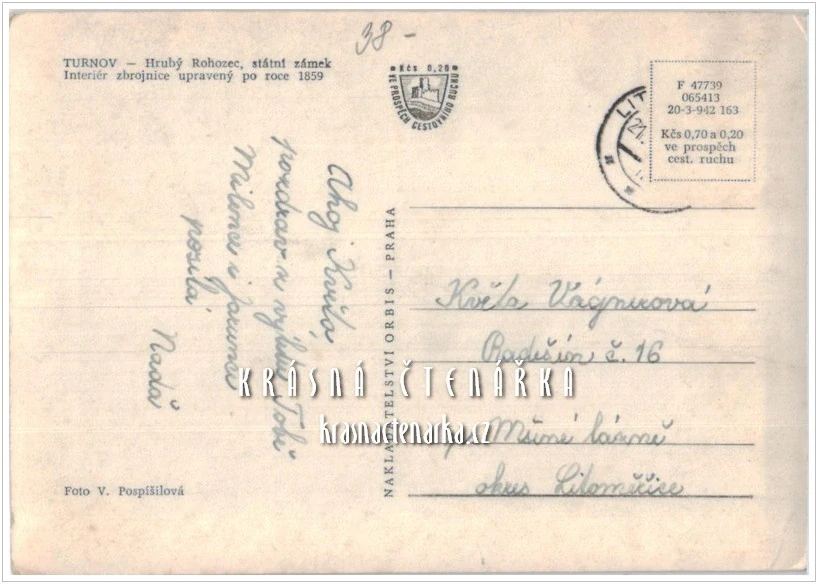 38-
TURNOV — Hrubý Rohozec, státní zámek
Interiér zbrojnice upravený po roce 1859
Kčs 0,20
VE PROSPĚCH CESTOVNÍHO RUCHU
LIT
21.
F 47739
065413
20-3-942 163
Kčs 0,70 a 0,20
ve prospěch
cest. ruchu
Ahoj Květo
pozdrav z výletu Tobě
Milence i Jarunce
posílá
Nadá
NAKLADATELSTVÍ ORBIS — PRAHA
Květa Vágnerová
Radešín č. 16
KRÁSNÁ ČTENÁŘKA
krasnactenarka.cz
Mšené lázně
okres Litoměřice
Foto V. Pospíšilová